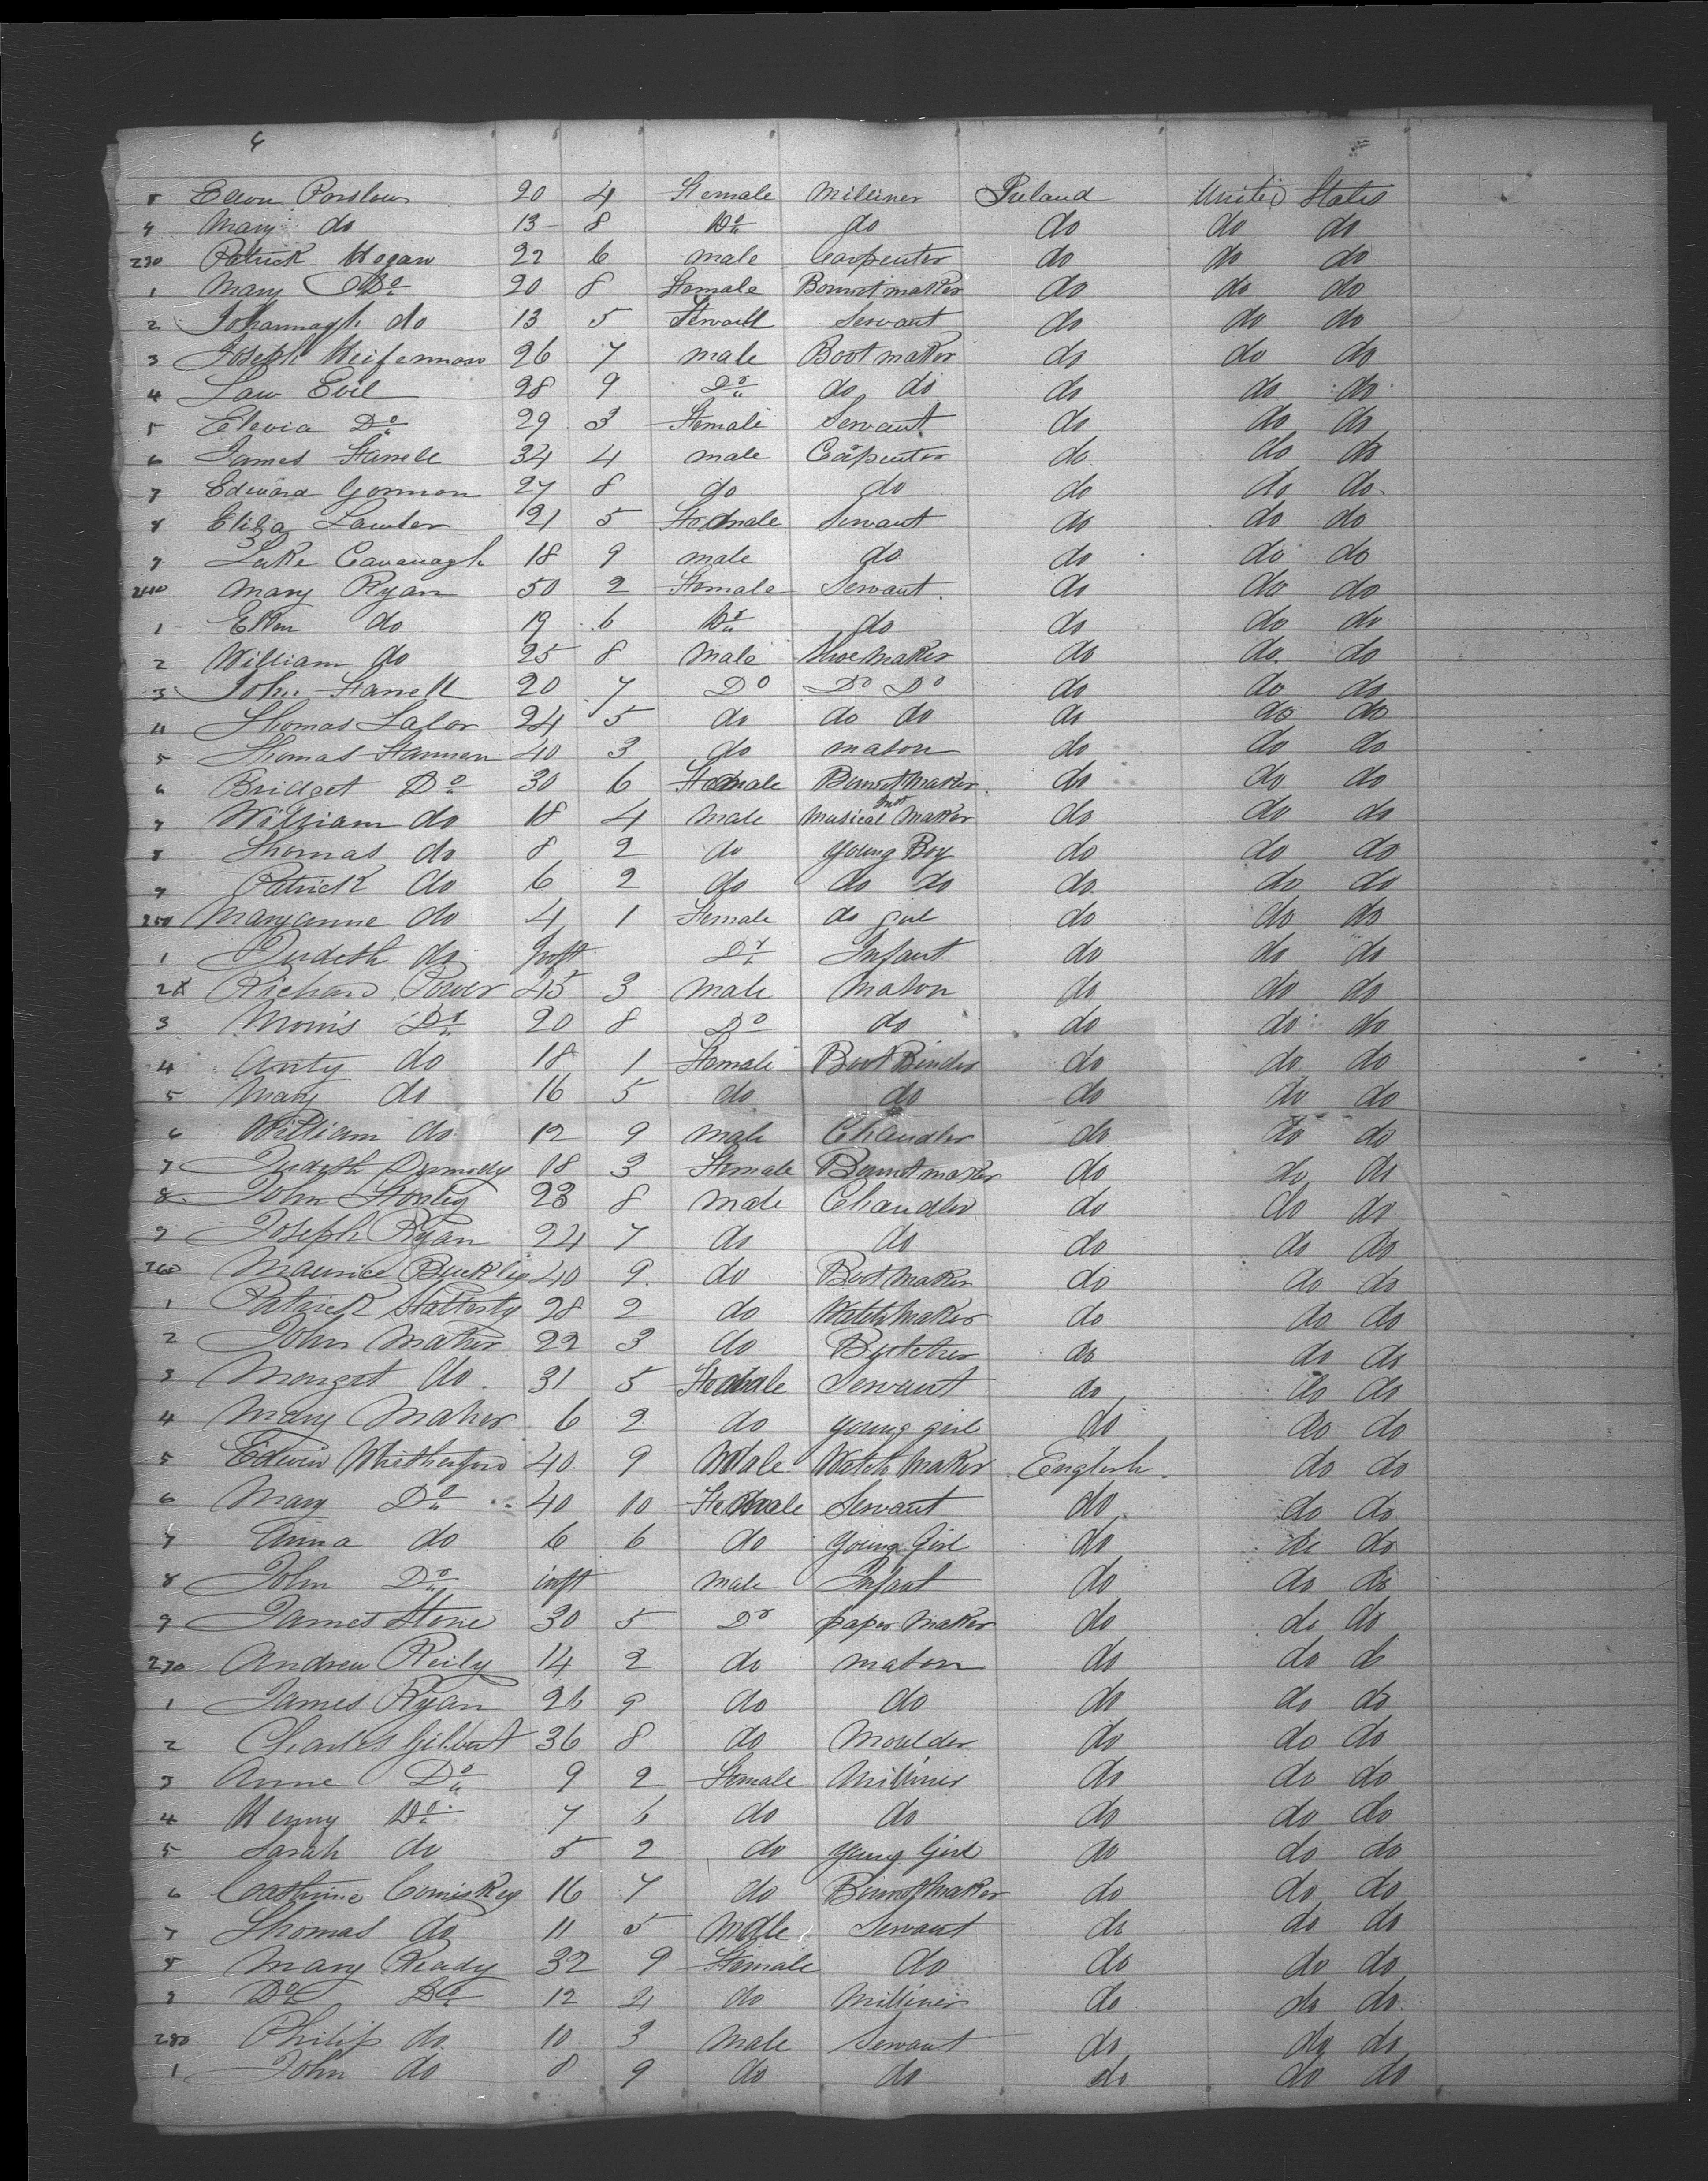 6
8 Ellen Parslow 20 4 Female Milliner Ireland United States
9 Mary do 13 8 Do do do do do
230 Patrick Hogan 22 6 male Carpenter do do do
1 Mary Do 20 8 Female Bonnet maker do do do
2 Johannagh do 13 5 Servant do do do
3 Joseph Heifernan 26 7 male Boot maker do do do
4 Law 28 9 Do do do do do do
5 Do 29 3 Female Servant do do do
6 James Farrell 34 4 male Carpenter do do do
7 Edward Gorman 27 8 do do do do do
8 Eliza Lawler 21 5 Female Servant do do do
9 Luke Cavanagh 18 9 male do do do do
240 Mary Ryan 50 2 Female Servant do do do
1 Ellen do 19 6 Do do do do do
2 William do 25 8 Male Shoe Maker do do do
3 John Farrell 20 7 Do Do Do do do do
4 Thomas Lalor 24 5 do do do do do do
5 Thomas Hannen 40 3 do mason do do do
6 Bridget Do 30 6 Female Bonnet Maker do do do
7 William do 18 4 Male Musical Inst Maker do do do
8 Thomas do 8 2 do young Boy do do do
9 Patrick do 6 2 do do do do do do
250 Maryanne do 4 1 Female do girl do do do
1 Judeth do Inft Do Infant do do do
2 x Richard Power 45 3 Male Mason do do do
3 Morris Do 20 8 Do do do do do
4 Anty do 18 1 Female Boot Binder do do do
5 Mary do 16 5 do do do do do
6 William do 12 9 Male Chandler do do do
7 Judeth Dermody 18 3 Female Bonnet maker do do do
8 John 23 8 Male Chandler do do do
9 Joseph Ryan 24 7 do do do do do
260 Maurice Buckley 40 9 do Boot Maker do do do
1 Patrick Slatterty 28 2 do Watch Maker do do do
2 John Maher 22 3 do Butcher do do do
3 Margret do 31 5 Female Servant do do do
4 Mary Maher 6 2 do young girl do do do
5 Edwin 40 9 Male Watch Maker English do do
6 Mary Do 40 10 Female Servant do do do
7 Anna do 6 6 do Young Girl do do do
8 John Do inft Male Infant do do do
9 James Stone 30 5 Do paper Maker do do do
270 Andrew Reily 14 2 do mason do do do
1 James Ryan 26 9 do do do do do
2 Charles Gilbert 36 8 do Moulder do do do
3 Anne Do 9 2 Female Milliner do do do
4 Henny Do 7 6 do do do do do
5 Sarah do 5 2 do Young Girl do do do
6 Cathrine Comiskey 16 7 do Bonnet Maker do do do
7 Thomas do 11 5 Male Servant do do do
8 Mary Ready 32 9 Female do do do do
9 Do Do 12 4 do Milliner do do do
280 Philip do 10 3 Male Servant do do do
1 John do 8 9 do do do do do